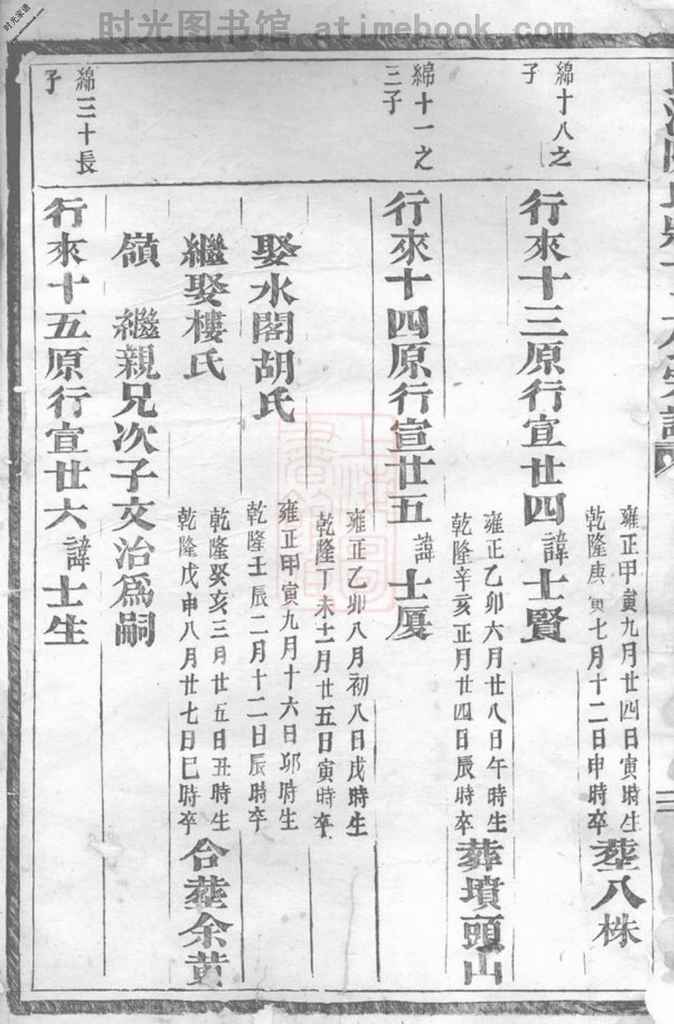 时光家谱
www.atimebook.com
时光图书馆 atimebook.com
雍正甲寅九月廿四日寅時生
乾隆庚寅七月十二日申時卒
葬八株
綿十八之
子
行來十三原行宣廿四 諱士賢
雍正乙卯六月廿八日午時生
乾隆辛亥正月廿四日辰時卒
葬墳頭山
綿十一之
三子
行來十四原行宣廿五 諱士厦
雍正乙卯八月初八日戌時生
乾隆丁未十一月廿五日寅時卒
娶水閣胡氏
雍正甲寅九月十六日卯時生
乾隆壬辰二月十二日辰時卒
繼娶樓氏
乾隆癸亥三月廿五日丑時生
乾隆戊申八月廿七日巳時卒
合葬余黄
嶺 繼親兄次子文治爲嗣
綿三十長
子
行來十五原行宣廿六 諱士生